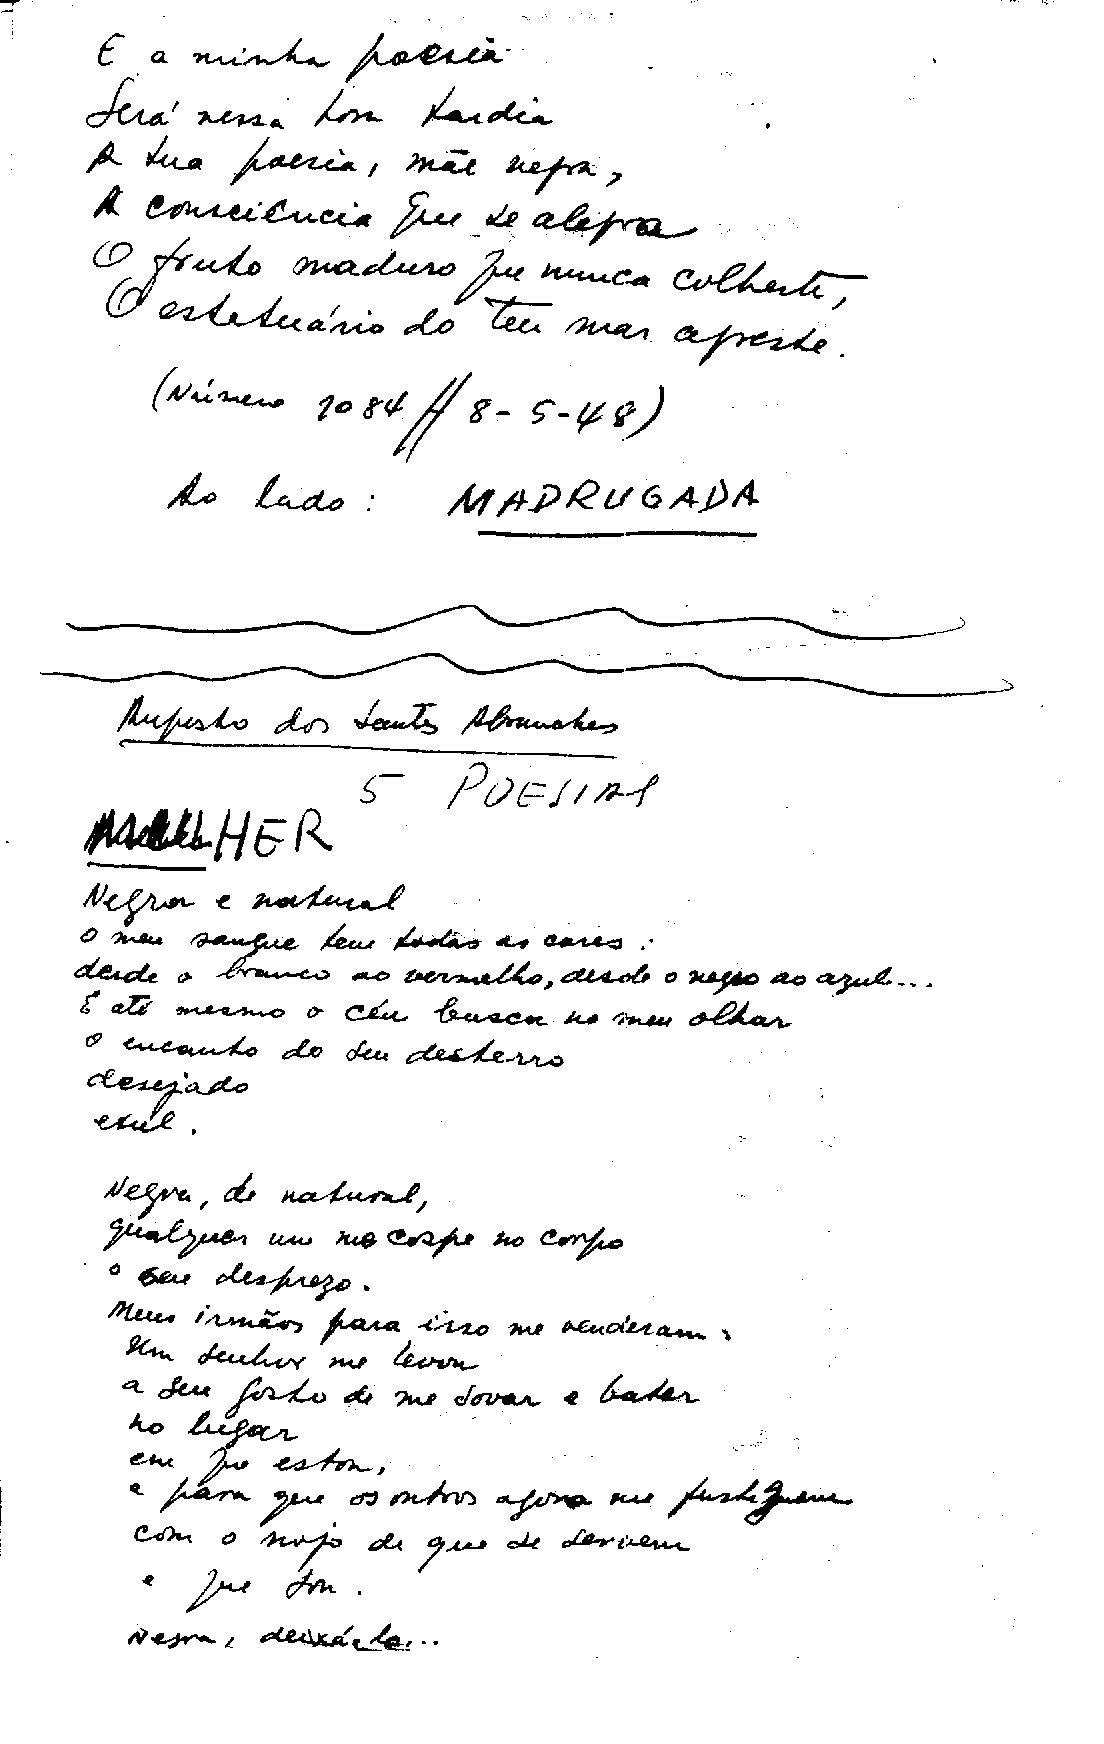 E a minha poesia
Será nessa hora tardia
A tua poesia, mãe negra,
A consciência que se alegra
O fruto maduro que nunca colheste,
O estatuário do teu mar agreste.
(Número 1084 // 8-5-48)
Ao lado: MADRUGADA
Augusto dos Santos Abranches
5 POESIAS
MULHER
Negra e natural
o meu sangue tem todas as cores:
desde o branco ao vermelho, desde o negro ao azul...
E até mesmo o céu busca no meu olhar
o encanto do seu desterro
desejado
exul.
Negra, de natural,
qualquer um me cospe no corpo
o seu desprezo.
Meus irmãos para isso me venderam;
Um senhor me levou
a seu gosto de me sovar e bater
no lugar
em que estou,
e para que os outros agora me fustiguem
com o nojo de que se servem
e que sou.
Negra, deixá-lo...